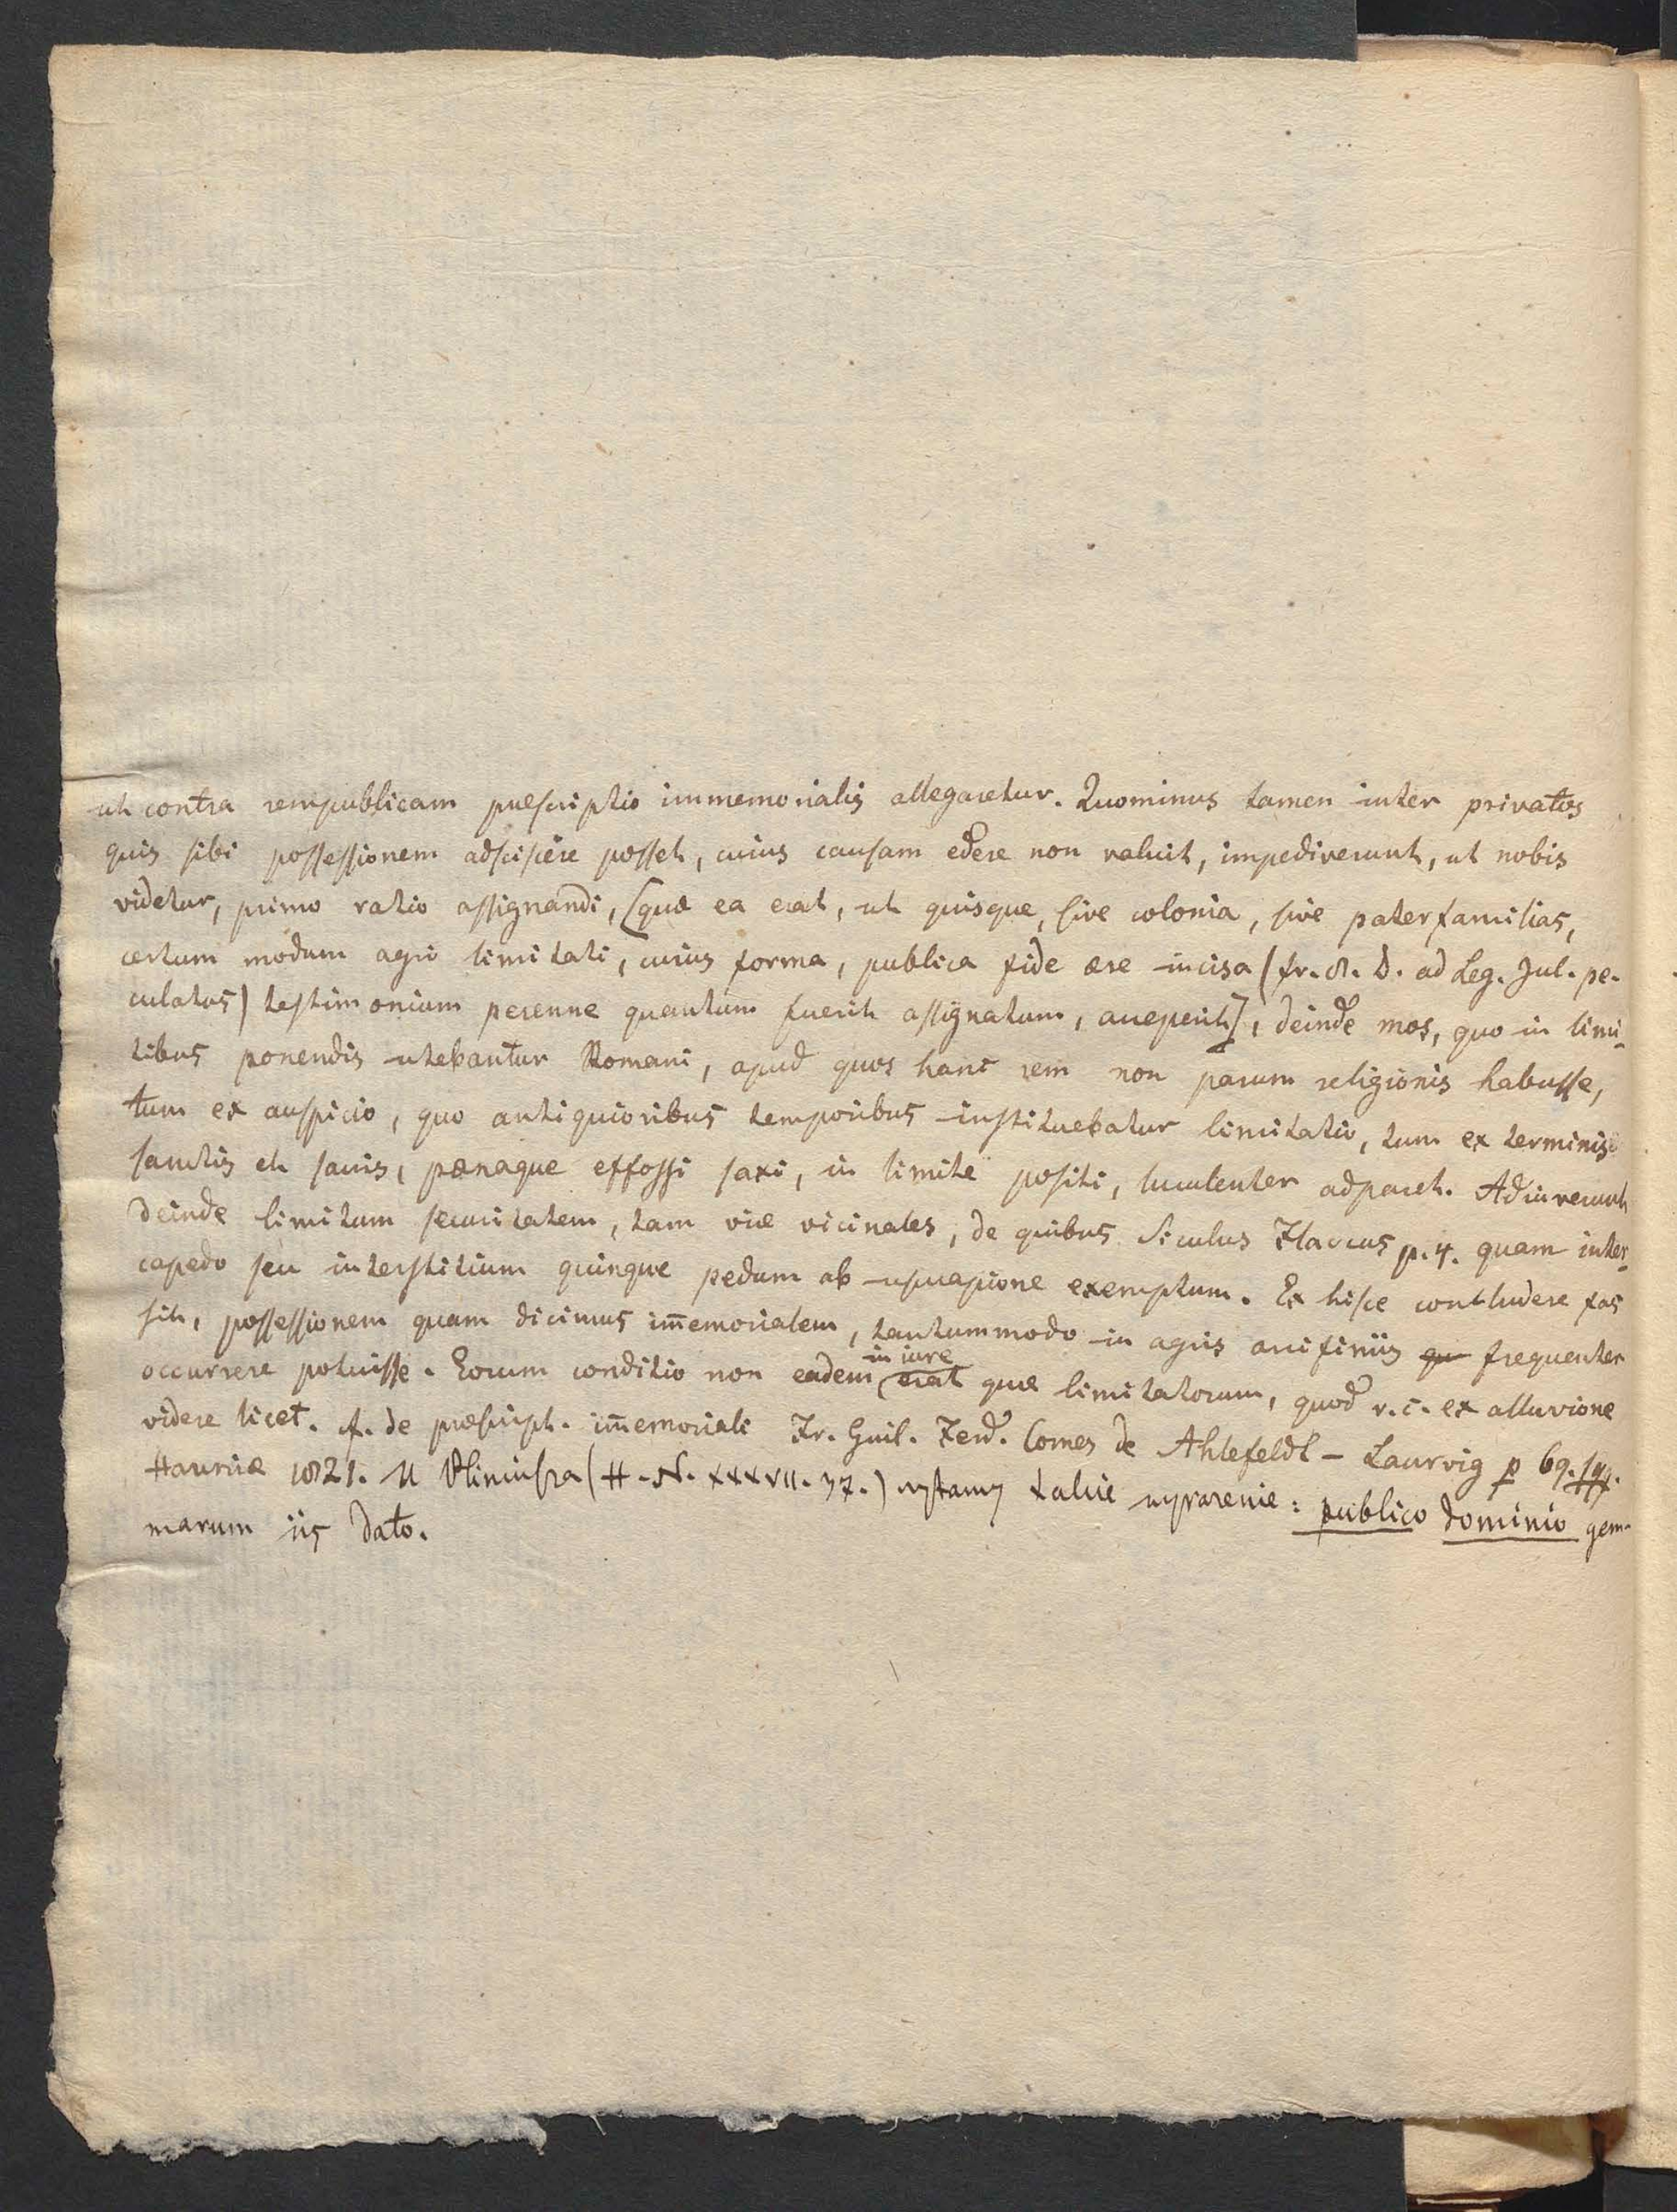 ut contra rempublicam præscriptio immemorialis allegaretur. Quominus tamen inter privatos
quis sibi possessionem adsciscere posset, cuius causam edere non valuit, impediverunt, ut nobis
videtur, primo ratio assignandi, (quæ ea erat, ut quisque, sive colonia, sive paterfamilias,
certum modum agri limitati, cuius forma, publica fide ære incisa (fr. 8. D. ad Leg. Jul. pe-
culatus) testimonium perenne quantum fuerit assignatum, acceperit], deinde mos, quo in limi-
tibus ponendis utebantur Romani, apud quos hanc rem non parum religionis habuisse,
tum ex auspicio, quo antiquioribus temporibus instituebatur limitatio, tum ex terminis
sanctis et sacris, pœnaque effossi saxi, in limite positi, luculenter adparet. Adiuverunt
deinde limitum securitatem, tam viæ vicinales, de quibus Siculus Flaccus p. 4. quam inter-
capedo seu interstitium quinque pedum ab usucapione exemptum. Ex hisce concludere fas
sit, possessionem quam dicimus im̄emorialem, tantummodo in agris arcifiniis qu frequenter
occurrere potuisse. Eorum conditio non eadem in iure erat quæ limitatorum, quod v. c. ex alluvione
videre licet. f. de præscript. im̄emoriali Fr. Guil. Ferd. Comes de Ahlefeldt - Laurvig p 69. sqq.
Hauniæ 1821. U Pliniusza (H. N. XXXVII. 37.) czytamy takie wyrazenie: publico dominio gem-
marum iis dato.